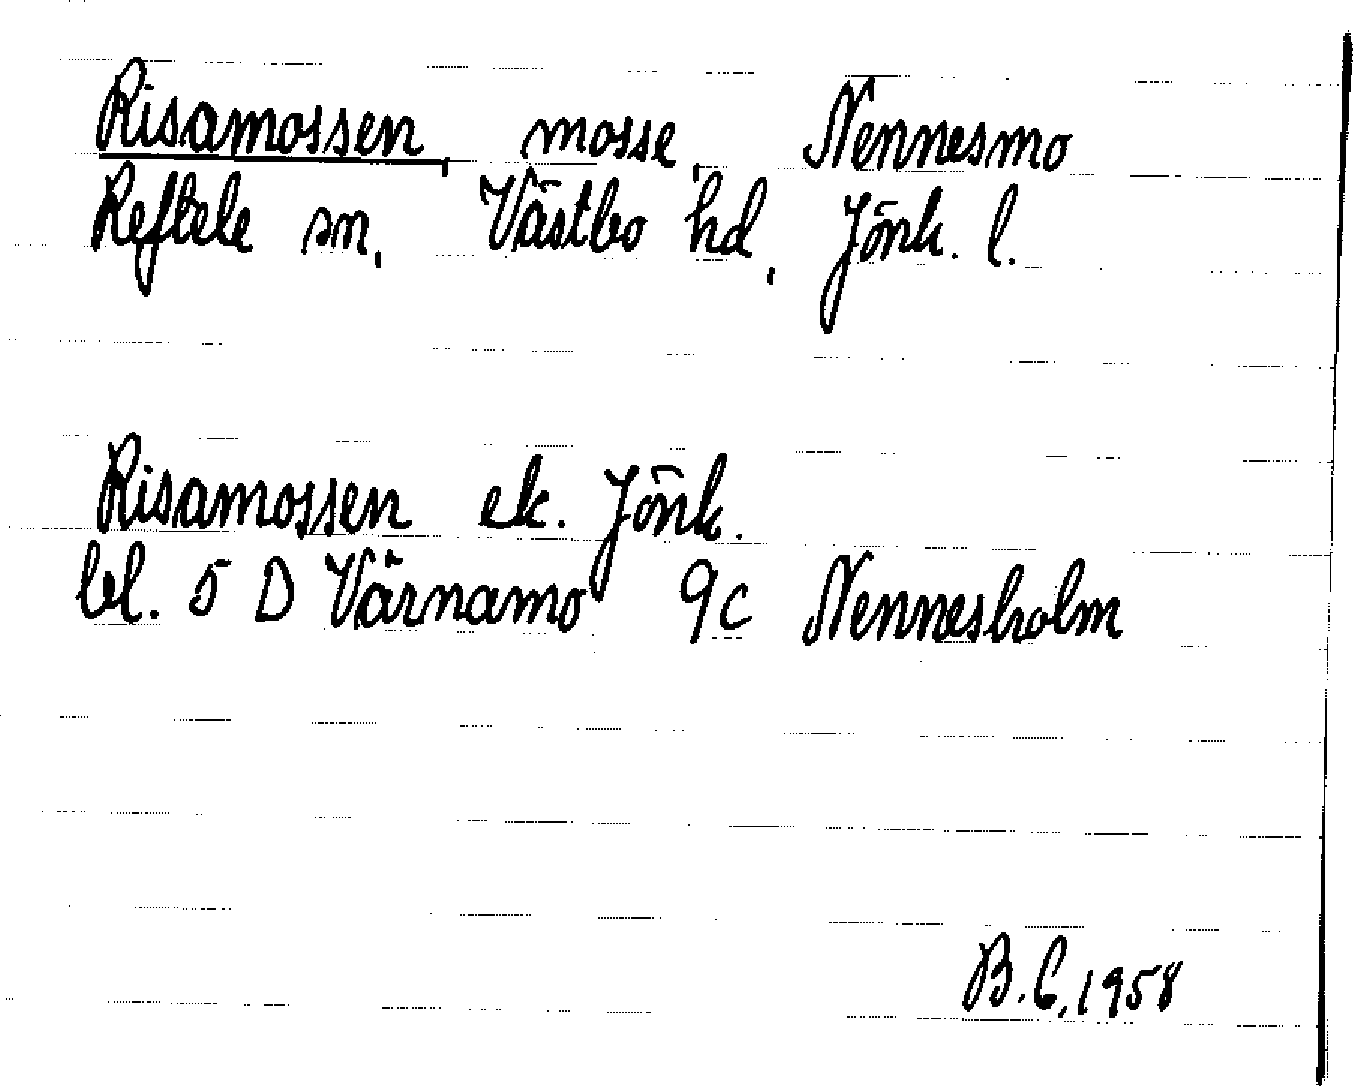 Risamossen, mosse, Nennesmo
Reftele sn, Västbo hd, Jönk. l.
Risamossen ek. Jönk.
bl. 5 D Värnamo 9c Nennesholm
B.C, 1958